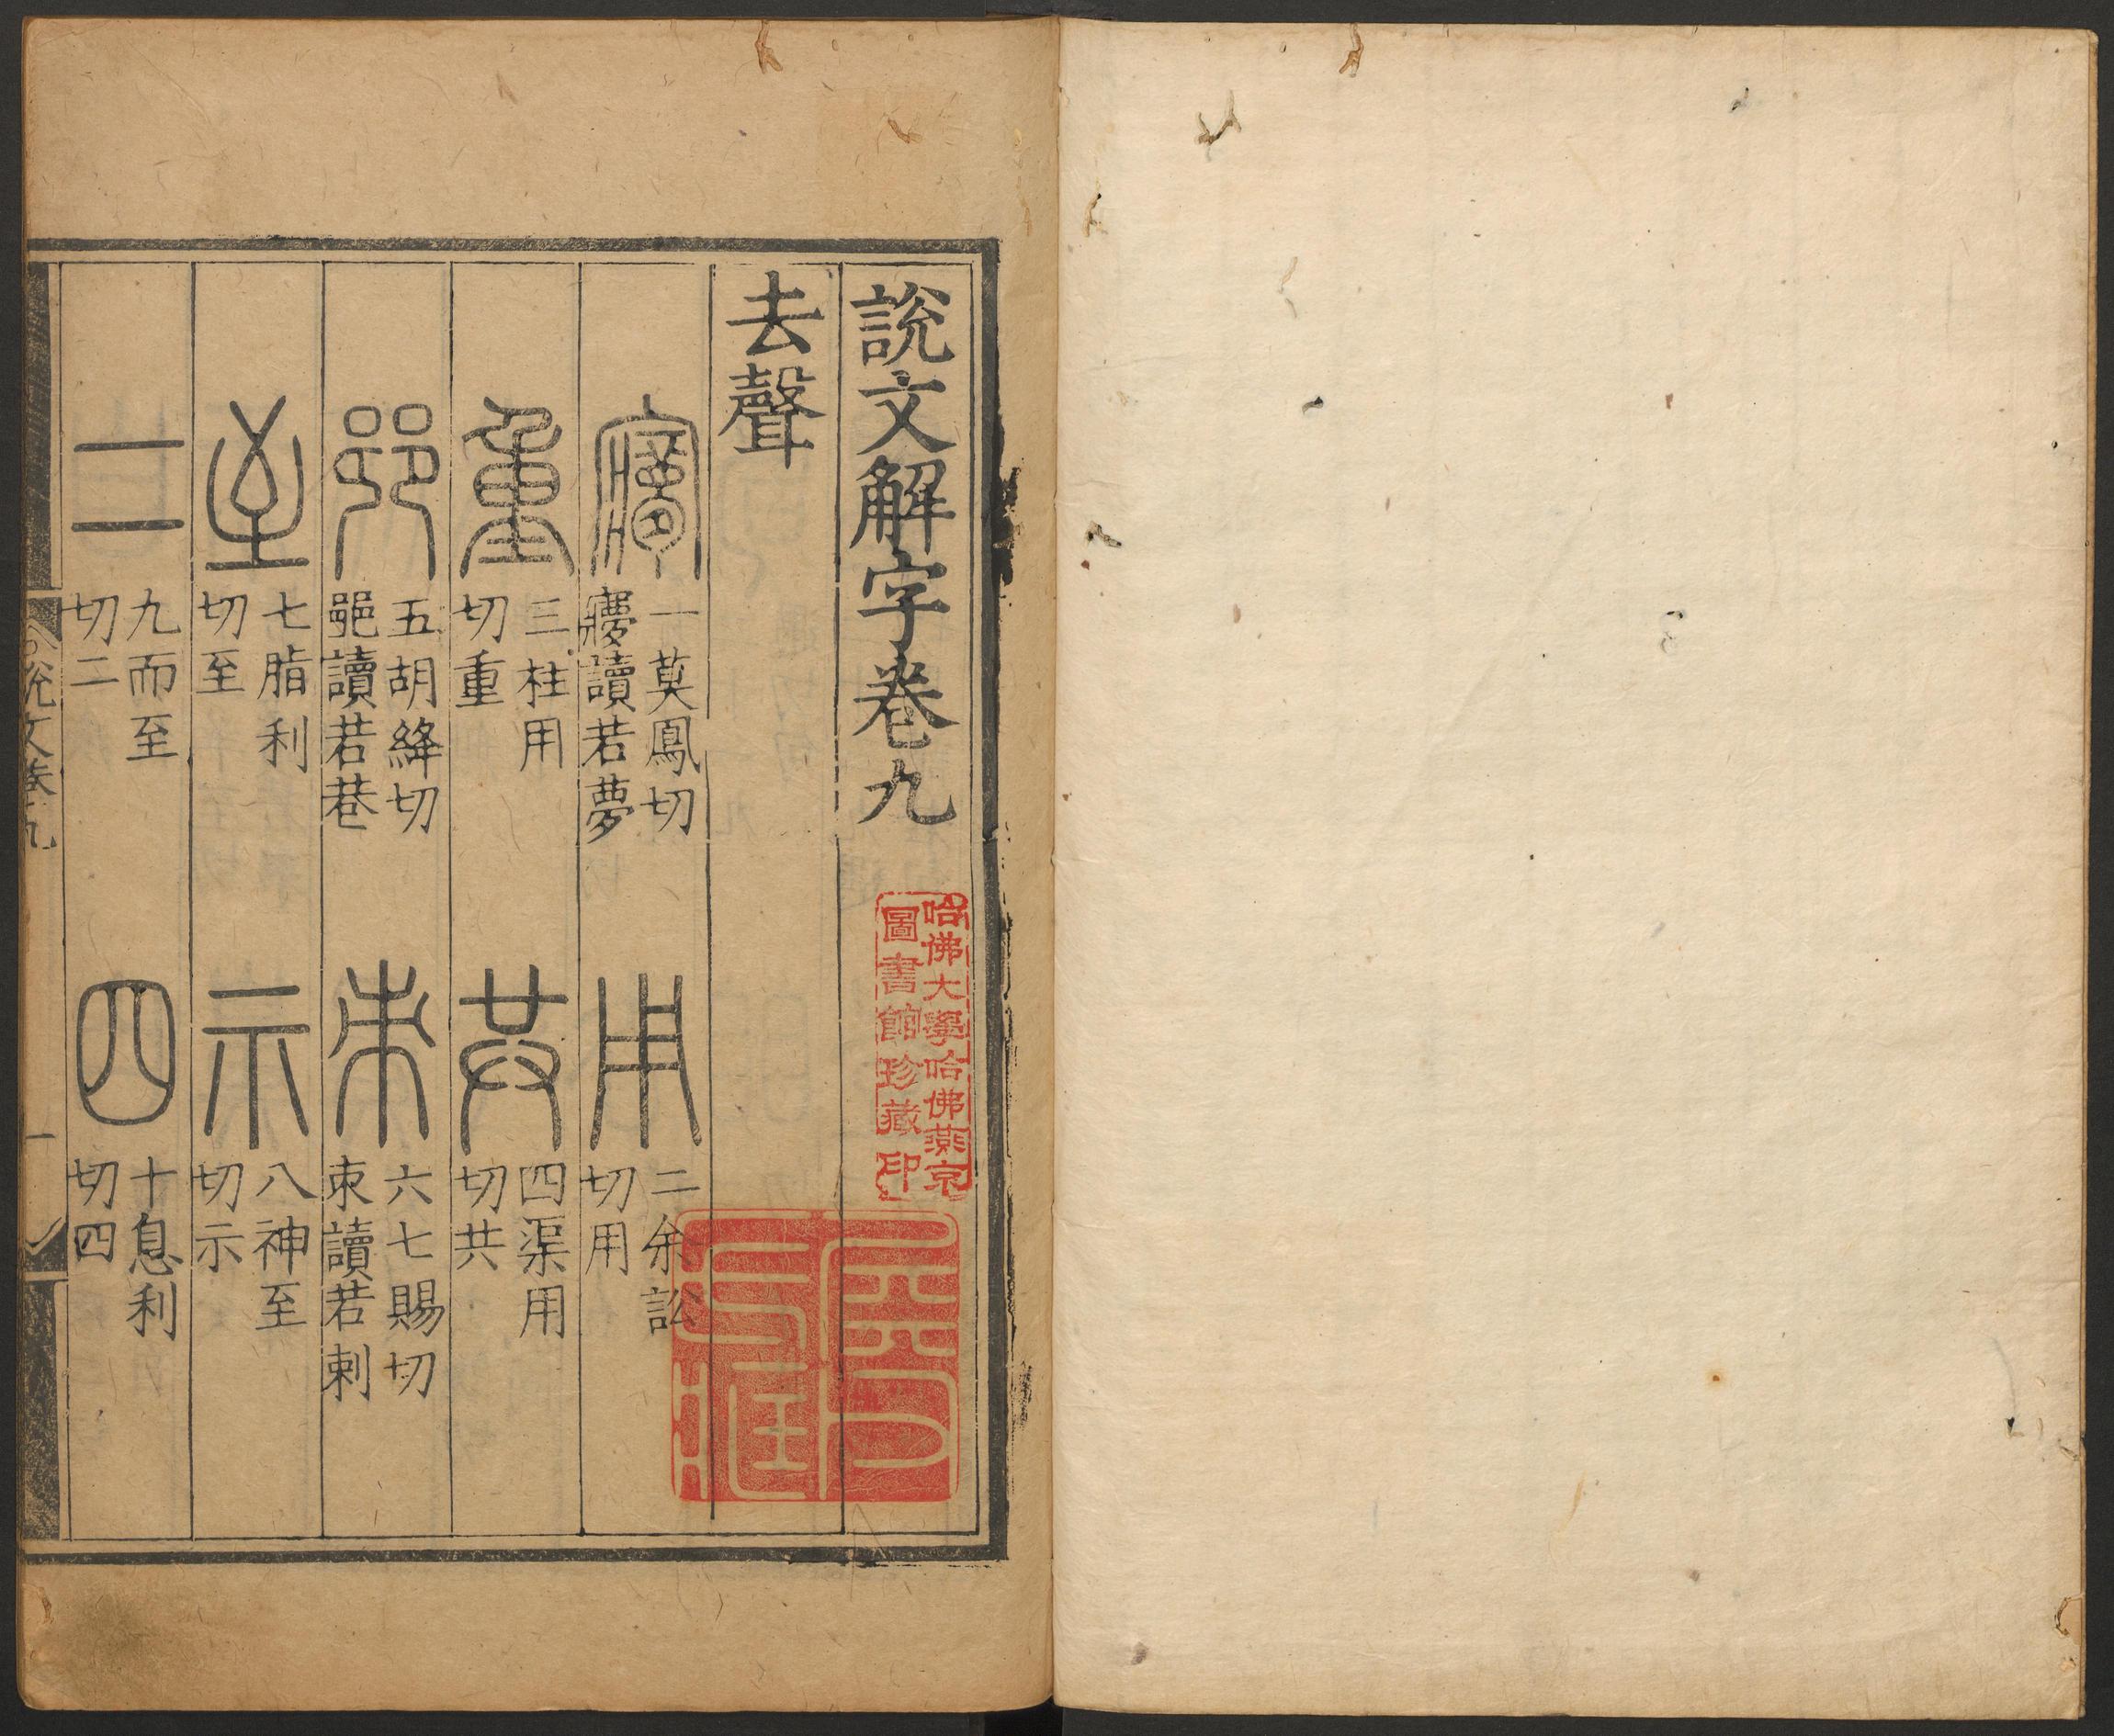 說文解字卷九
去聲
㝱 一莫鳳切㝱讀若夢
用 二余訟切用
重 三柱用切重
共 四渠用切共
𨛜 五胡絳切𨛜讀若巷
朿 六七賜切朿讀若刺
至 七脂利切至
示 八神至切示
二 九而至切二
四 十息利切四
說文卷九
一
哈佛大學哈佛燕京
圖書館珍藏印